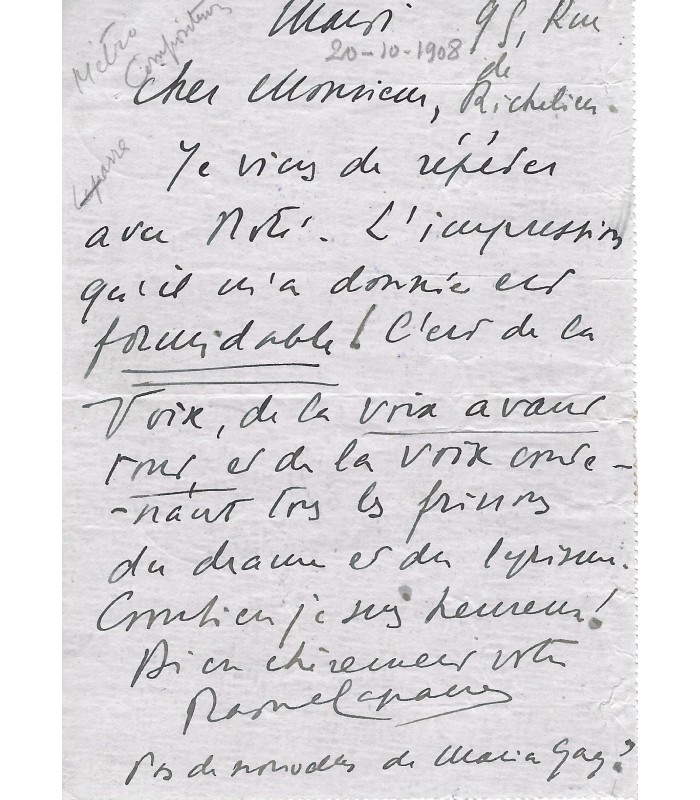 Métro
Compositeur
Laparra
Mardi 99, Rue
20-10-1908 de
Cher Monsieur, Richelieu.
Je viens de répéter
avec Noté. L'impression
qu'il m'a donnée est
formidable! C'est de la
Voix, de la voix avant
tout, et de la voix conte-
-nant tous les frissons
du drame et du lyrisme.
Combien je suis heureux!
Bien chèrement votre
Raoul Laparra
Pas de nouvelles de Maria Gay?